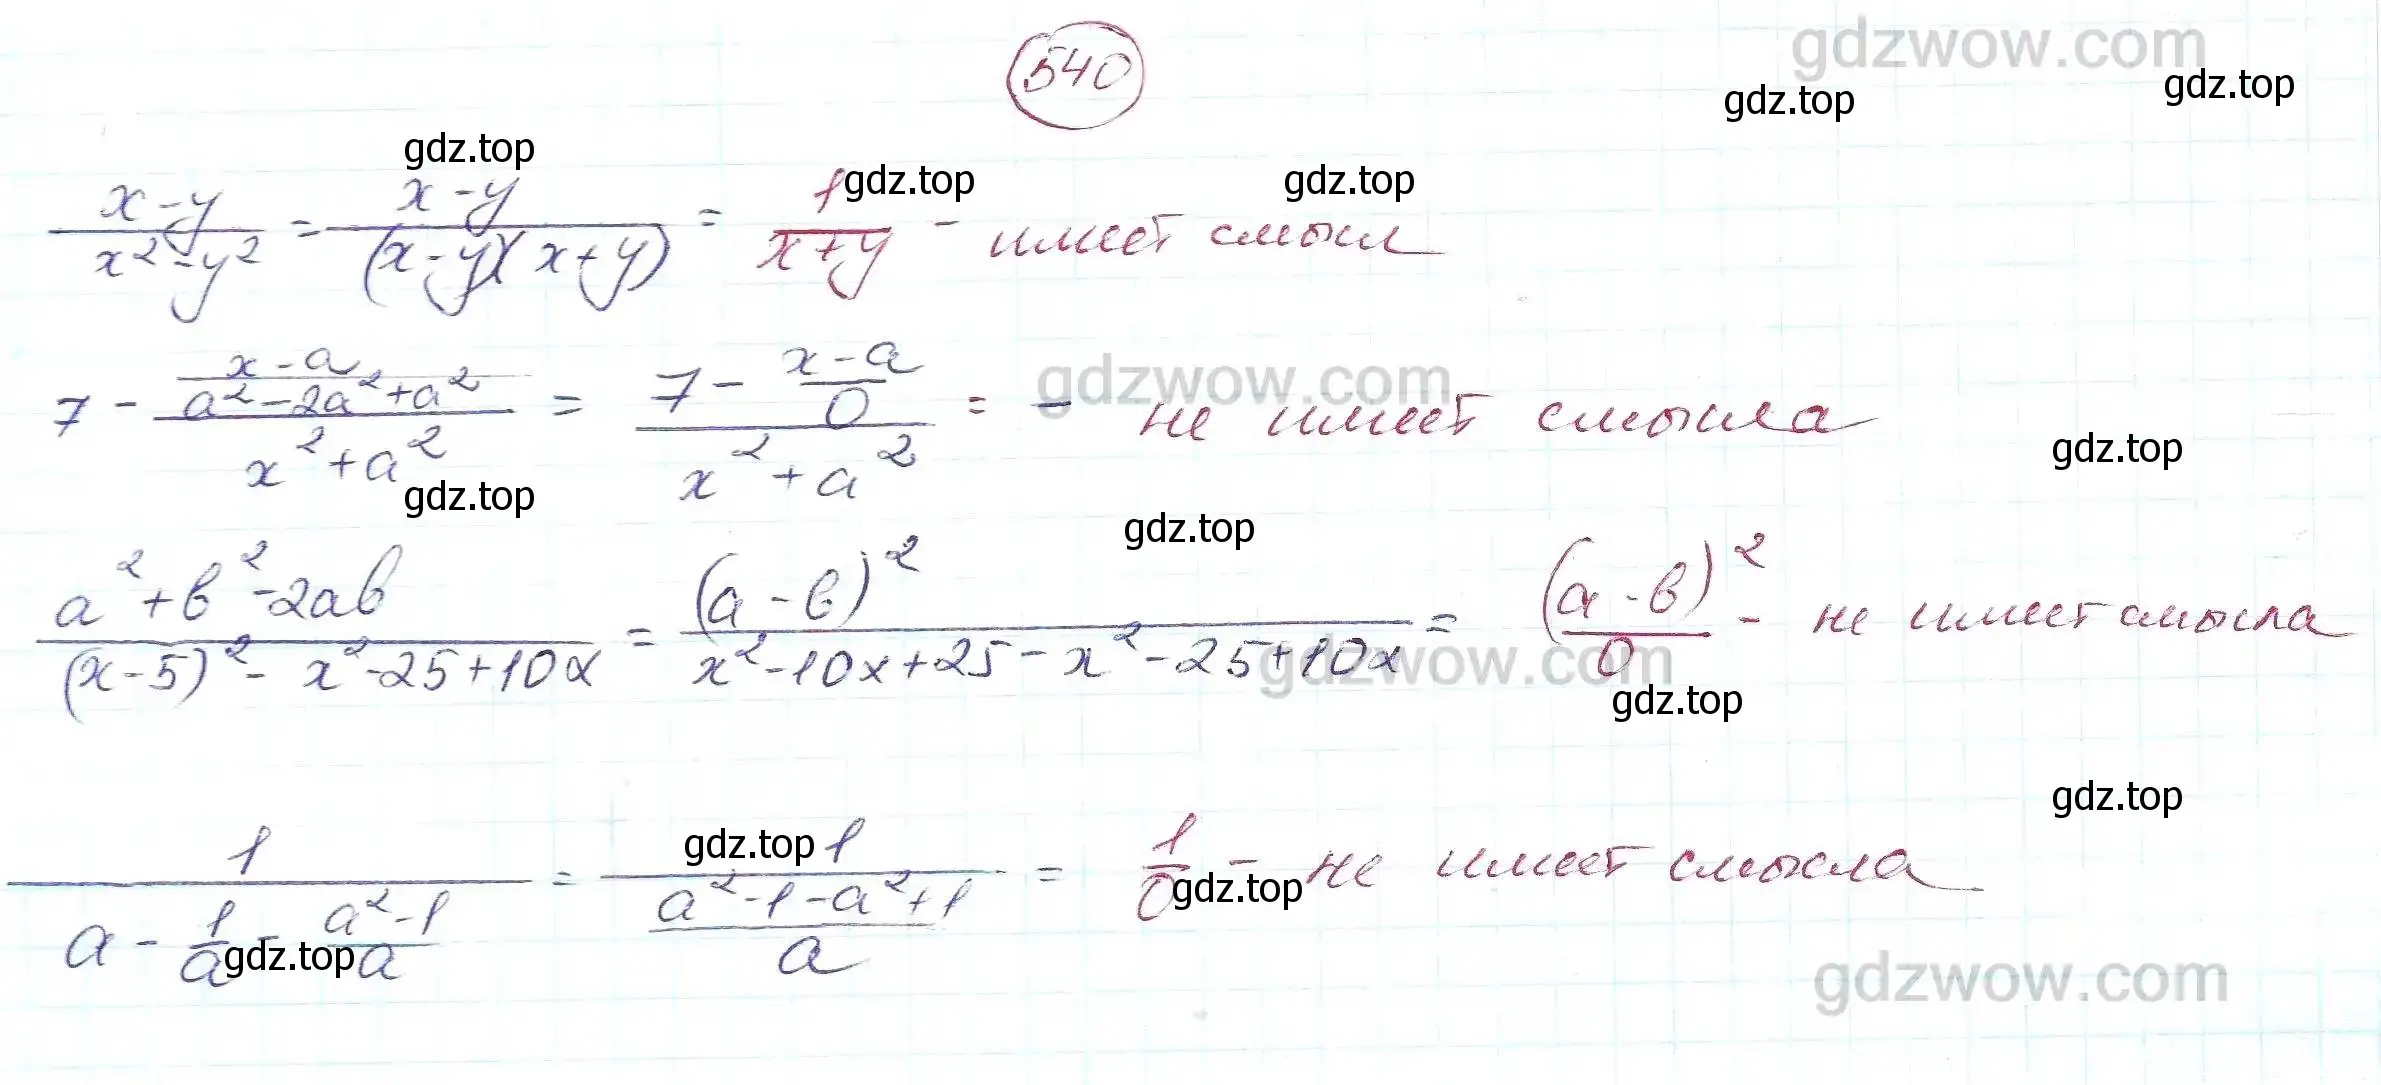 540
gdzwow.com
gdz.top gdz.top
gdz.top gdz.top gdz.top
x-y / x²-y² = x-y / (x-y)(x+y) = 1 / x+y - имеет смысл
7 - (x-a / a²-2a²+a²) / x²+a² = 7 - (x-a / 0) / x²+a² = - не имеет смысла
gdzwow.com
gdz.top gdz.top
gdz.top
a²+b²-2ab / (x-5)²-x²-25+10x = (a-b)² / x²-10x+25-x²-25+10x = (a-b)² / 0 - не имеет смысла
gdzwow.com
gdz.top
gdz.top
1 / a - 1/a - a²-1/a = 1 / (a²-1-a²+1 / a) = 1/0 - не имеет смысла
gdz.top gdz.top
gdz.top
gdzwow.com